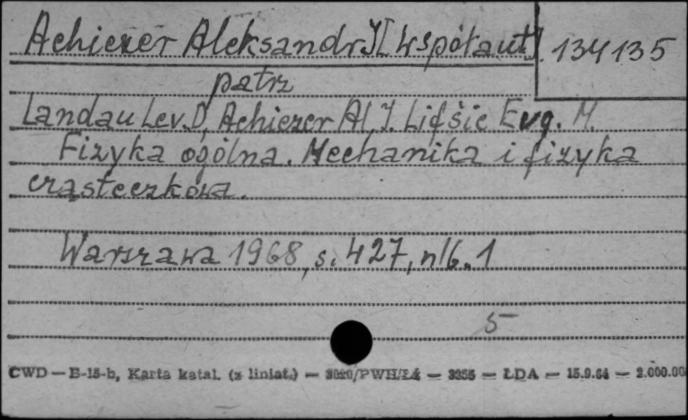 Achiezer Aleksandr J [Współaut.] 134135
patrz
Landau Lev. D, Achiezer Al J. Lifšic Evg. M.
Fizyka ogólna. Mechanika i fizyka
cząsteczkowa.
Warszawa 1968, s. 427, nlb. 1
5
CWD — B-15-b, Karta katal. (z liniat.) — 3020/PWH/Łź — 3255 — ŁDA — 15.9.64 — 2.000.00